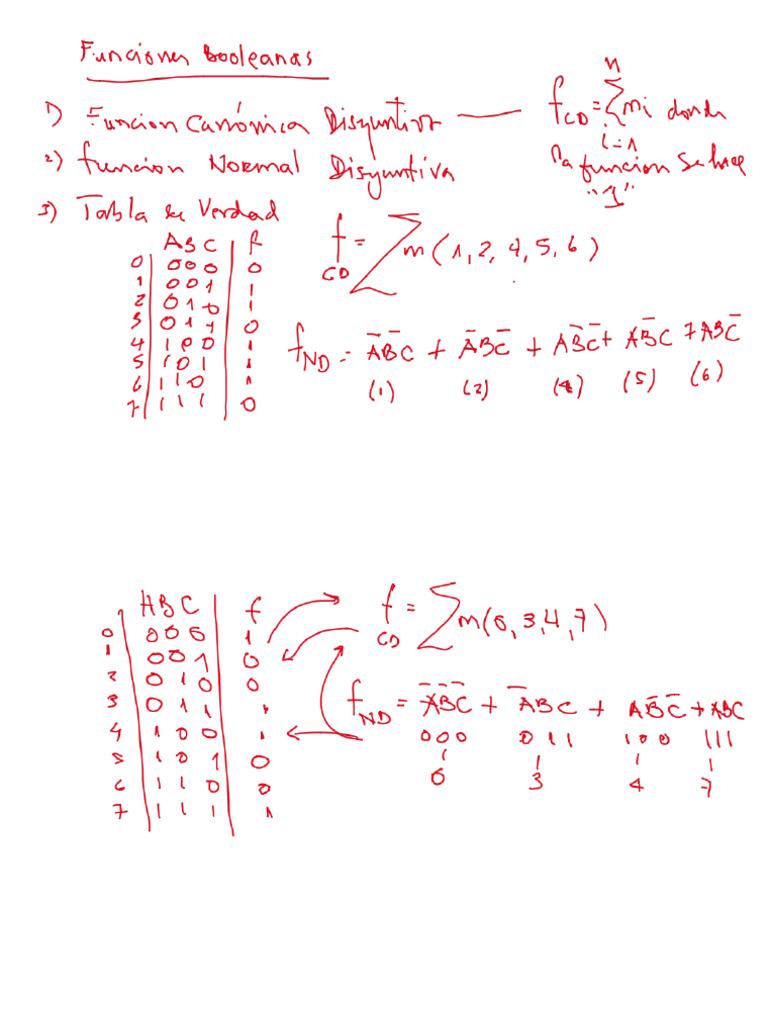 Funciones Booleanas
1) Funcion Canónica Disyuntiva — f_CD = Σ_{i=1}^{n} mi donde
la funcion se hace
"1"
2) funcion Normal Disyuntiva
3) Tabla de Verdad
A B C | f
0 | 0 0 0 | 0
1 | 0 0 1 | 1
2 | 0 1 0 | 1
3 | 0 1 1 | 0
4 | 1 0 0 | 1
5 | 1 0 1 | 1
6 | 1 1 0 | 1
7 | 1 1 1 | 0
f_CD = Σ m(1, 2, 4, 5, 6)
f_ND = A̅B̅C + A̅BC̅ + AB̅C̅ + AB̅C + ABC̅
(1) (2) (4) (5) (6)
A B C | f
0 | 0 0 0 | 1
1 | 0 0 1 | 0
2 | 0 1 0 | 0
3 | 0 1 1 | 1
4 | 1 0 0 | 1
5 | 1 0 1 | 0
6 | 1 1 0 | 0
7 | 1 1 1 | 1
f_CD = Σ m(0, 3, 4, 7)
f_ND = A̅B̅C̅ + A̅BC + AB̅C̅ + ABC
000 011 100 111
0 3 4 7